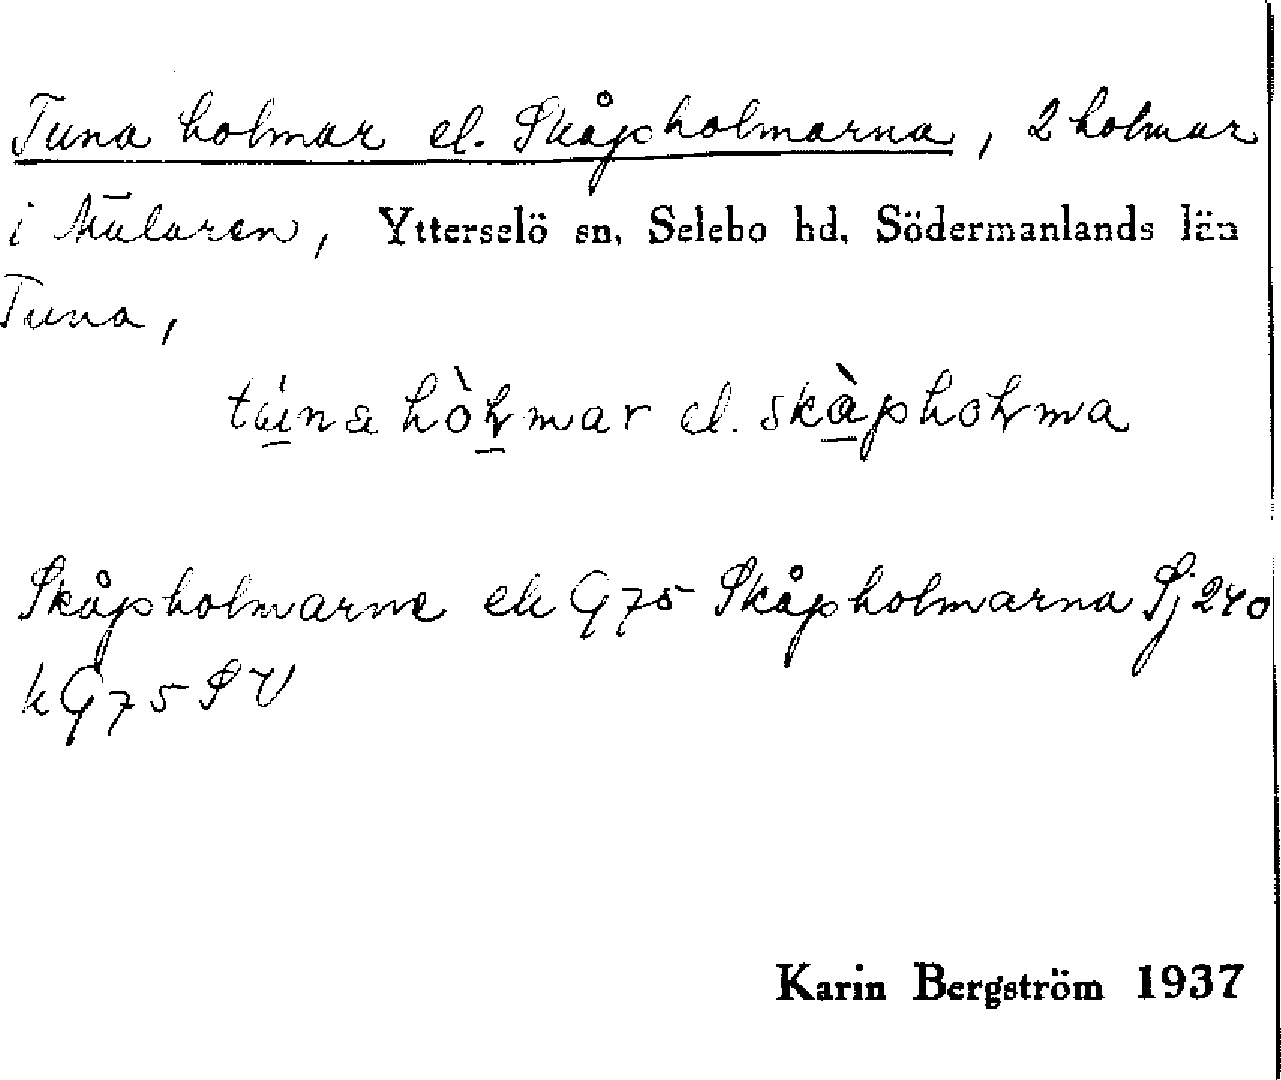 Tuna holmar el. Skåpholmarna, 2 holmar
i Mälaren, Ytterselö sn, Selebo hd, Södermanlands län
Tuna,
hòɫmar el. skàphoɫma
Skåpholmarne ek G 75 Skåpholmarna Sj 240
k G 75 SV
Karin Bergström 1937